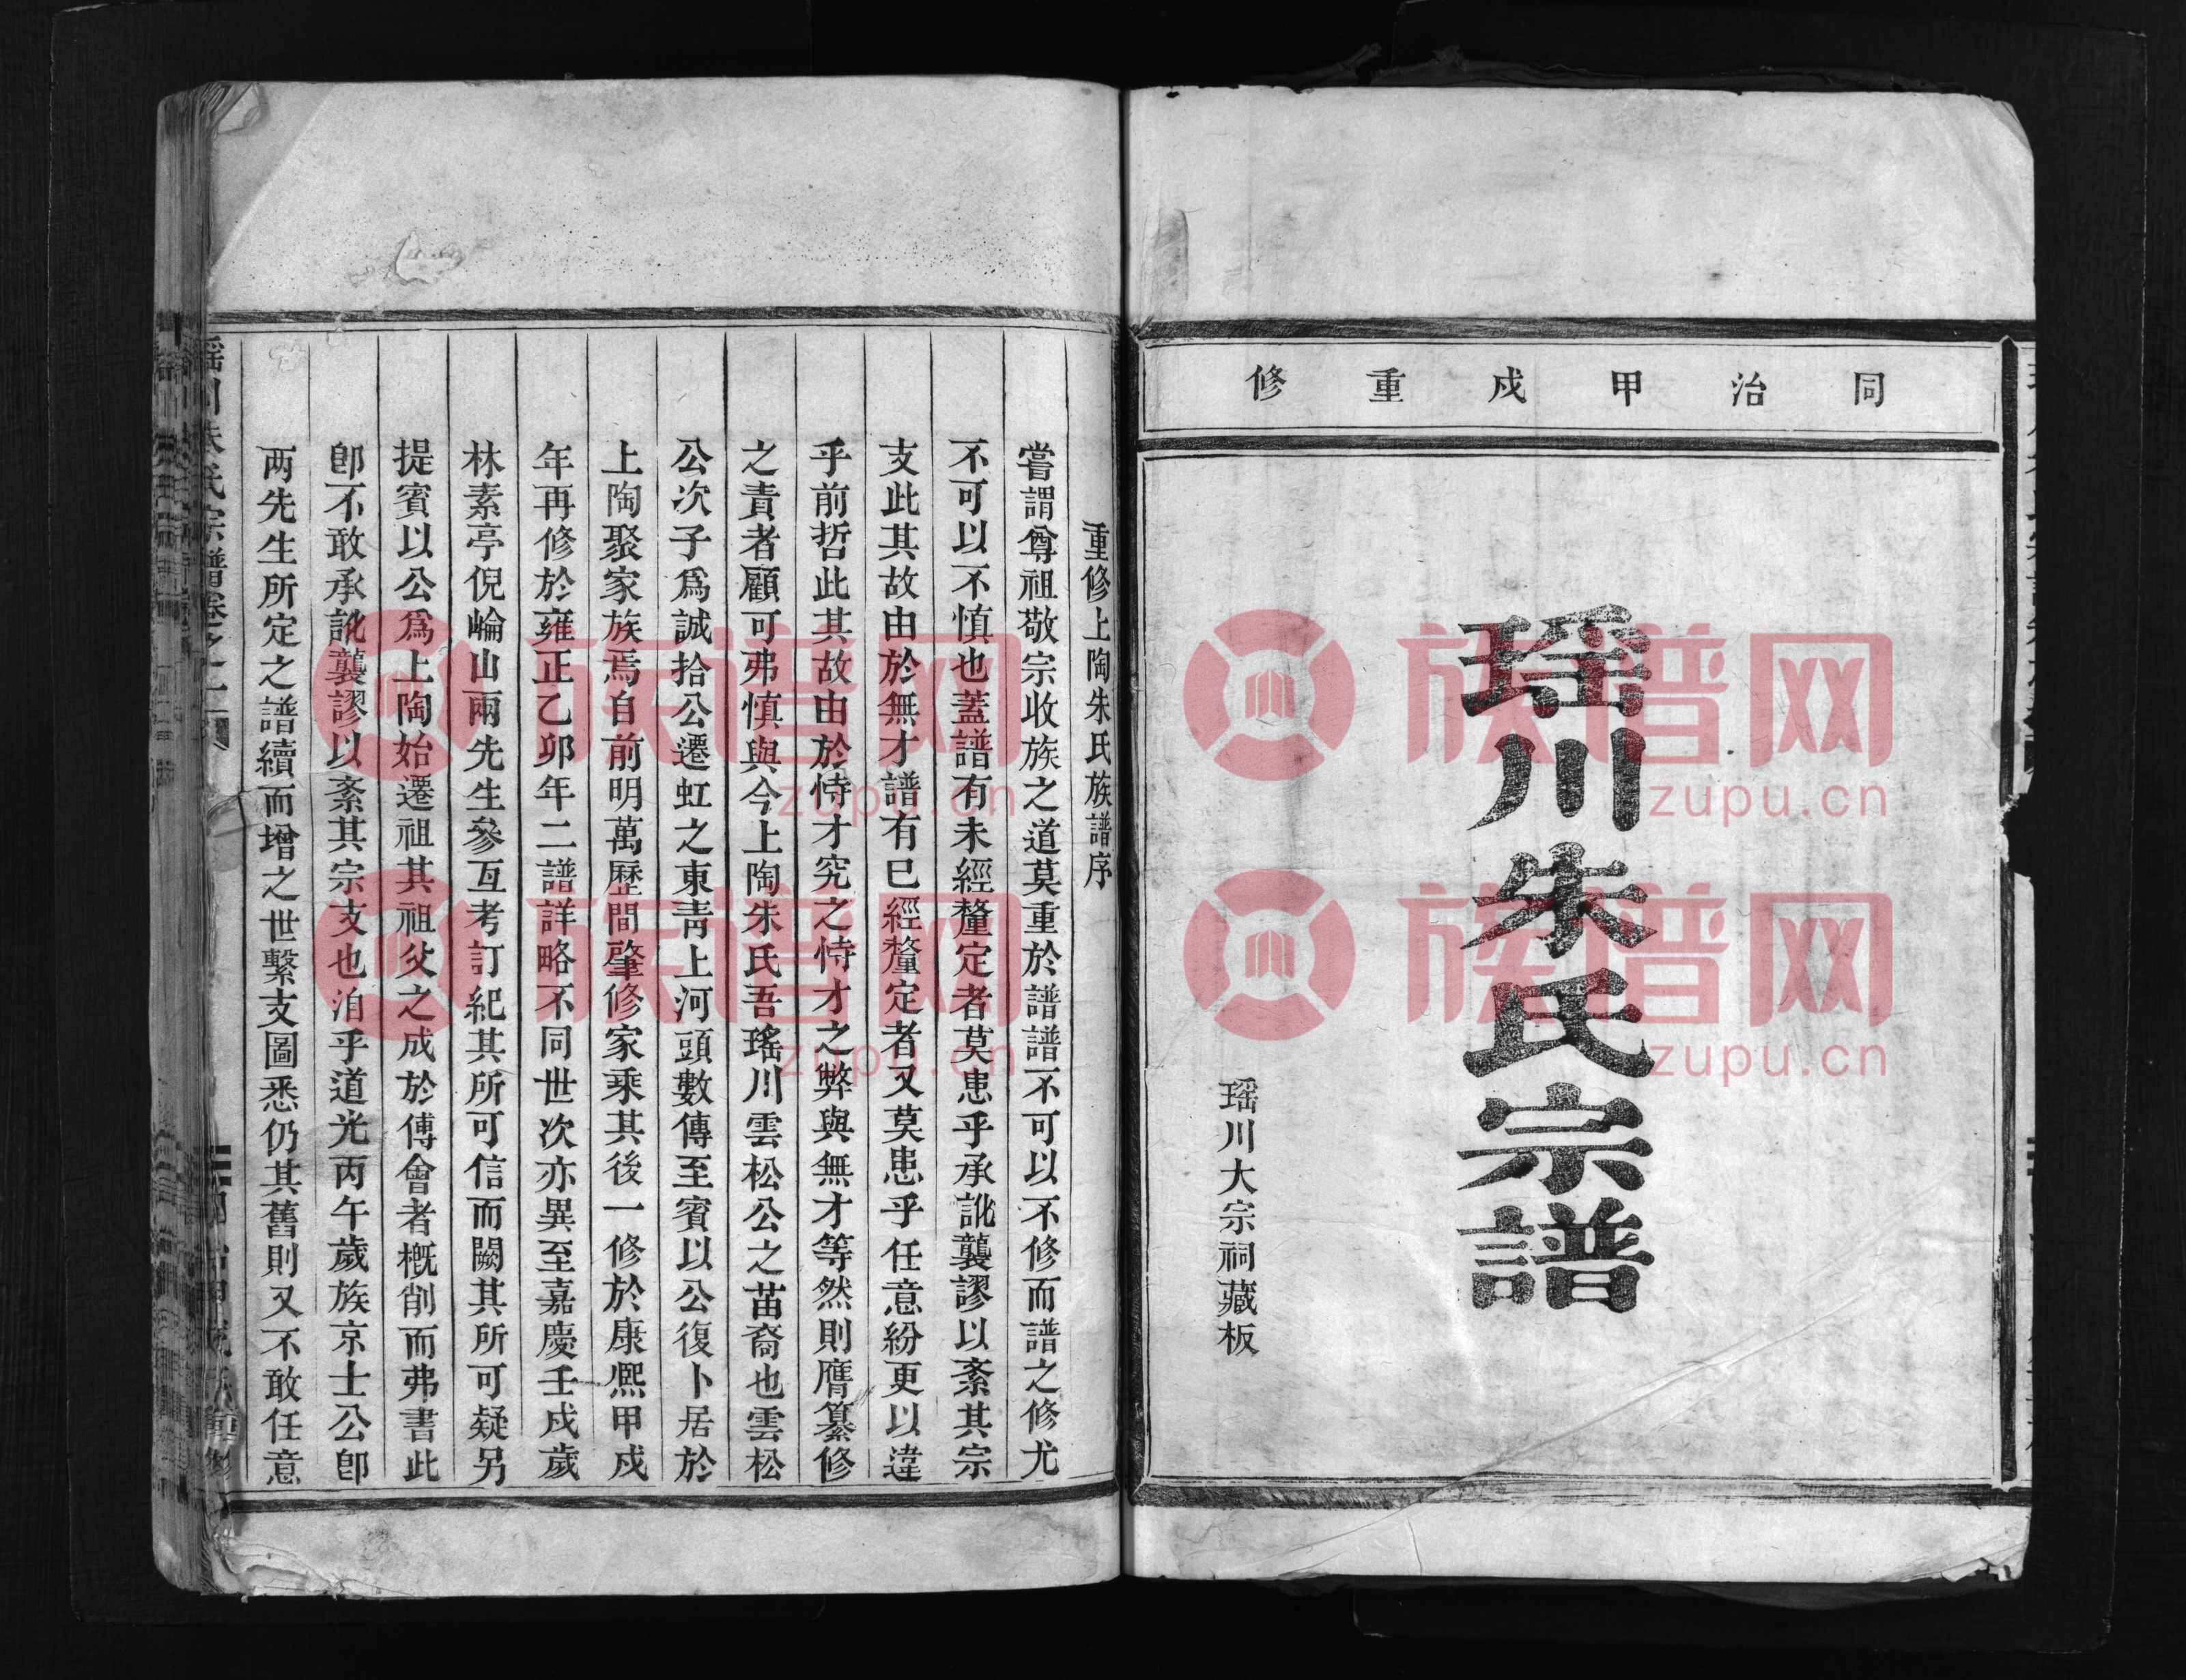 同治甲戌重修
瑶川朱氏宗譜
瑶川大宗祠藏板
重修上陶朱氏族譜序
嘗謂尊祖敬宗收族之道莫重於譜譜不可以不修而譜之修尤
不可以不慎也蓋譜有未經釐定者莫患乎承訛襲謬以紊其宗
支此其故由於無才譜有已經釐定者又莫患乎任意紛更以違
乎前哲此其故由於恃才究之恃才之弊與無才等然則膺纂修
之責者顧可弗慎與今上陶朱氏吾瑤川雲松公之苗裔也雲松
公次子為誠拾公遷虹之東青上河頭數傳至賓以公復卜居於
上陶聚家族焉自前明萬歷間肇修家乘其後一修於康熈甲戌
年再修於雍正乙卯年二譜詳略不同世次亦異至嘉慶壬戌歲
林素亭倪崘山兩先生參互考訂紀其所可信而闕其所可疑另
提賓以公為上陶始遷祖其祖父之成於傅會者槪削而弗書此
卽不敢承訛襲謬以紊其宗支也洎乎道光丙午歲族京士公卽
两先生所定之譜續而增之世繫支圖悉仍其舊則又不敢任意
族谱网
zupu.cn
族谱网
zupu.cn
族谱网
zupu.cn
族谱网
zupu.cn